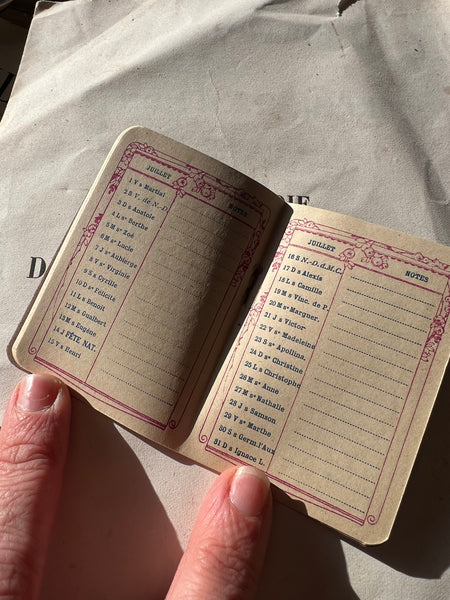 JUILLET
NOTES
1 V s Martial
2 S V. de N.-D.
3 D s Anatole
4 L sᵉ Berthe
5 M sᵉ Zoé
6 M sᵉ Lucie
7 J s Aubierge
8 V sᵉ Virginie
9 S s Cyrille
10 D sᵉ Félicité
11 L s Benoit
12 M s Gualbert
13 M s Eugène
14 J FÊTE NAT.
15 V s Henri
JUILLET
NOTES
16 S N.-D.d.M.C.
17 D s Alexis
18 L s Camille
19 M s Vinc. de P.
20 M sᵉ Marguer.
21 J s Victor
22 V sᵉ Madeleine
23 S sᵉ Apollina.
24 D sᵉ Christine
25 L s Christophe
26 M sᵉ Anne
27 M sᵉ Nathalie
28 J s Samson
29 V sᵉ Marthe
30 S s Germ.l'Aux
31 D s Ignace L.
D
IE